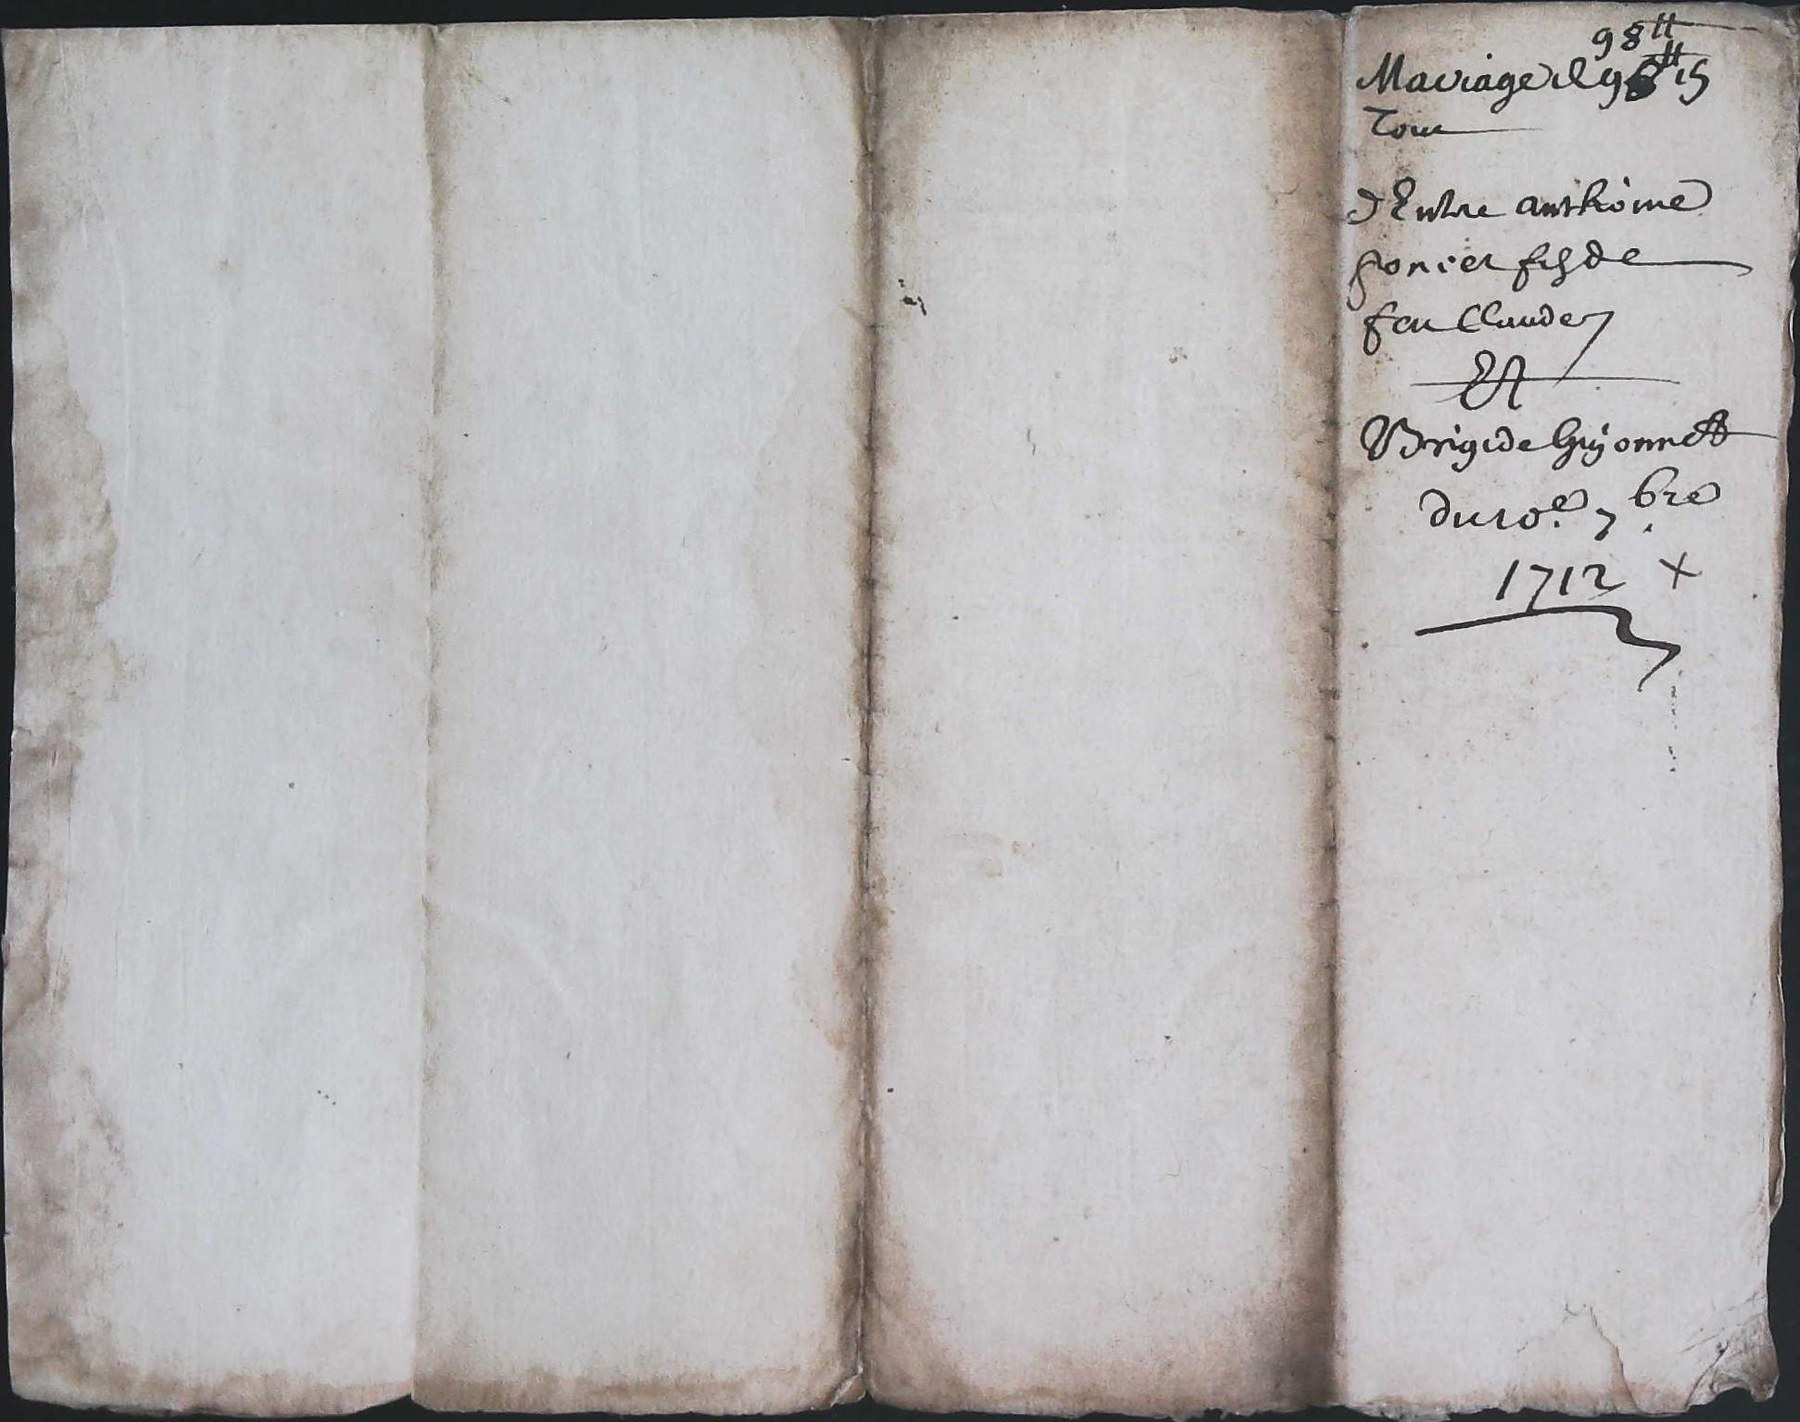 98tt
Mariage de 98tt 15
Tour
d'Entre anthoine
fils de
feu Claude
Et
Brigide Guyonnet
du 10e 7bre
1712 x